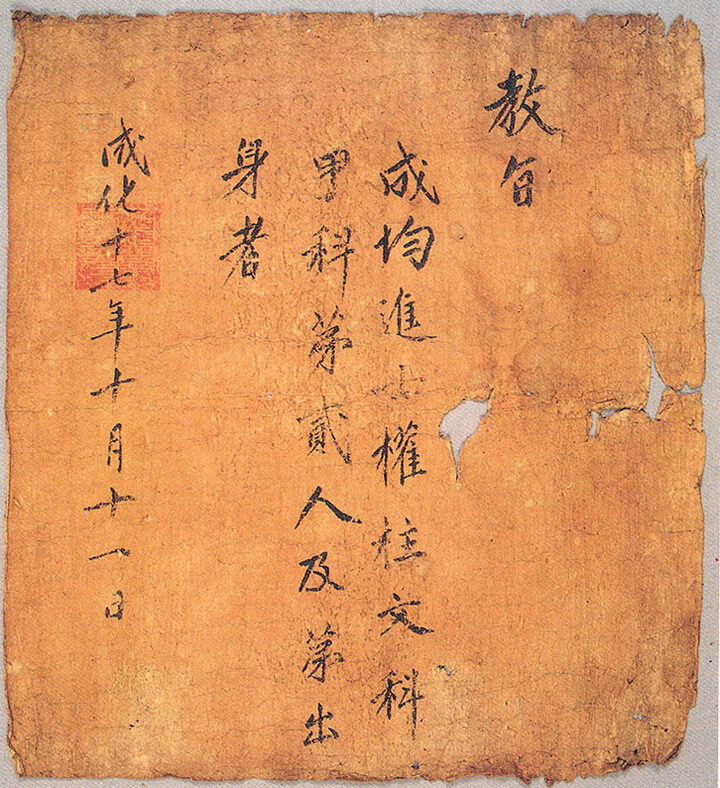 教旨
成均進士權柱文科
甲科第貳人及第出
身者
成化十七年十月十一日